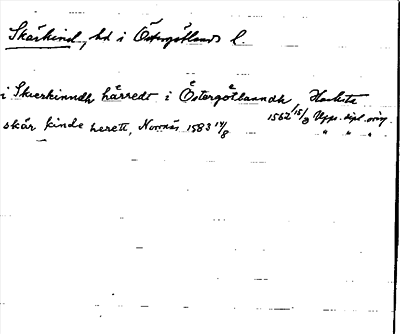 Skärkind, hd i Östergötlands l.
i Skierkinndh härredt i Östergötlanndh Hachsta
1562 15/3 Upps. dipl. orig.
skär kinde herett, Norrnäs 1583 14/8 " " "